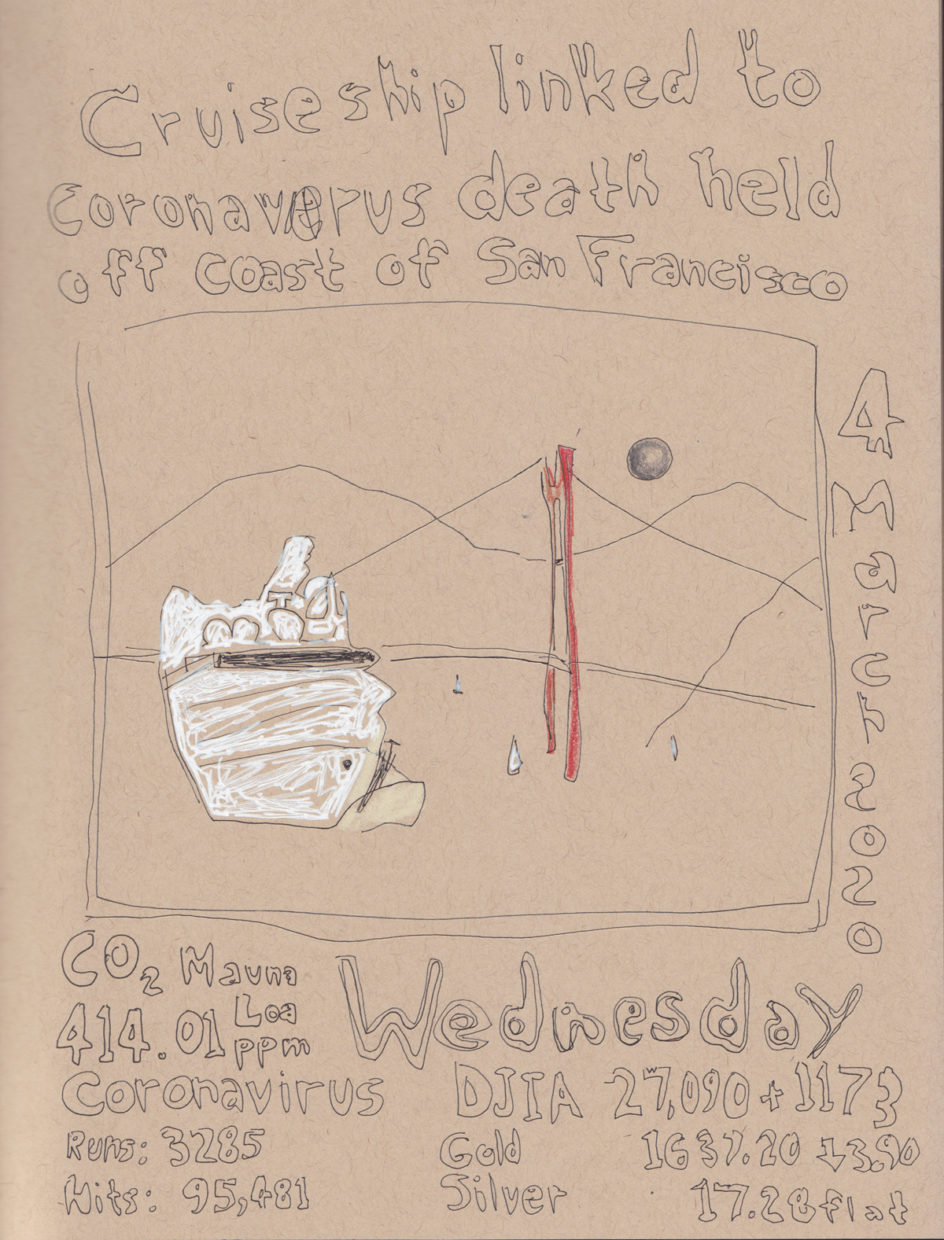 Cruise ship linked to
Coronaverus death held
off coast of San Francisco
4 March 2020
CO₂ Mauna
Loa
414.01 ppm
Wednesday
Coronavirus
Runs: 3285
Hits: 95,481
DJIA 27,090 + 1173
Gold 1637.20 ↓3.90
Silver 17.28 flat